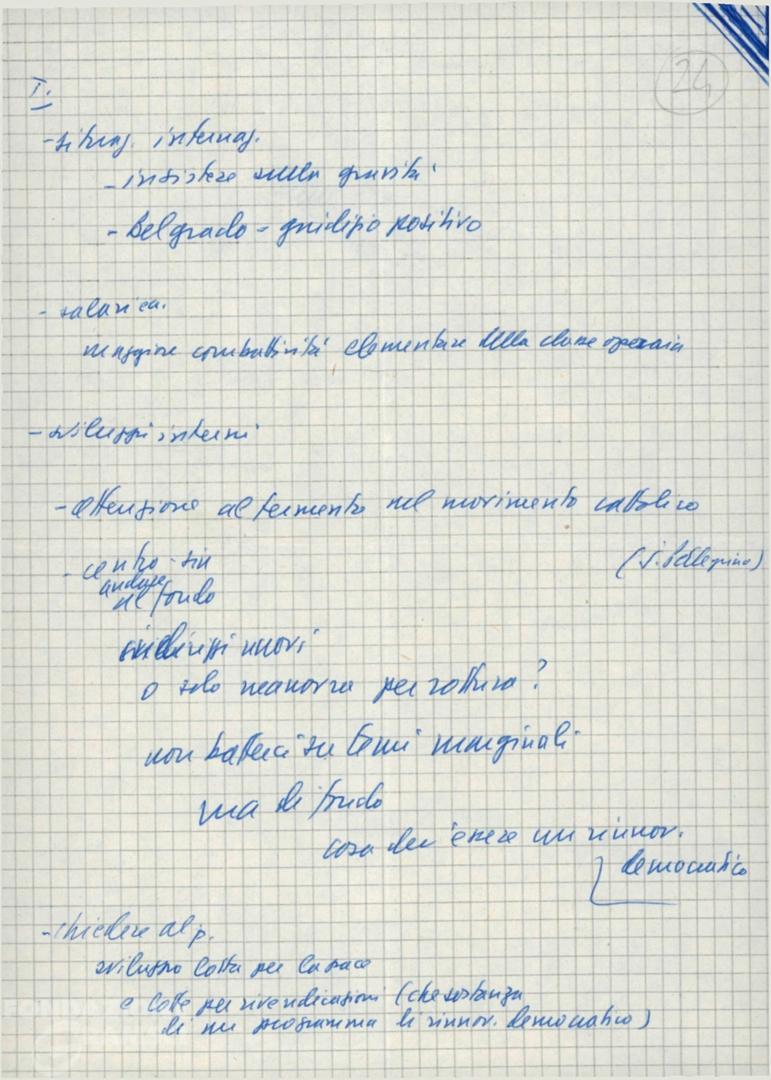 24
I.
- situaz. internaz.
- insistere sulla gravità
- Belgrado - giudizio positivo
- salari ca.
maggiore combattività elementare della classe operaia
- sviluppi interni
- attenzione al fermento nel movimento cattolico
(S. Pellegrino)
- centro-sin
andare
al fondo
indirizzi nuovi
o solo manovra per rottura?
non batterci su temi marginali
ma di fondo
cosa dev'essere un rinnov.
democratico
- chiedere al p.
sviluppo lotta per la pace
e lotte per rivendicazioni (che sostanza
di un programma di rinnov. democratico)